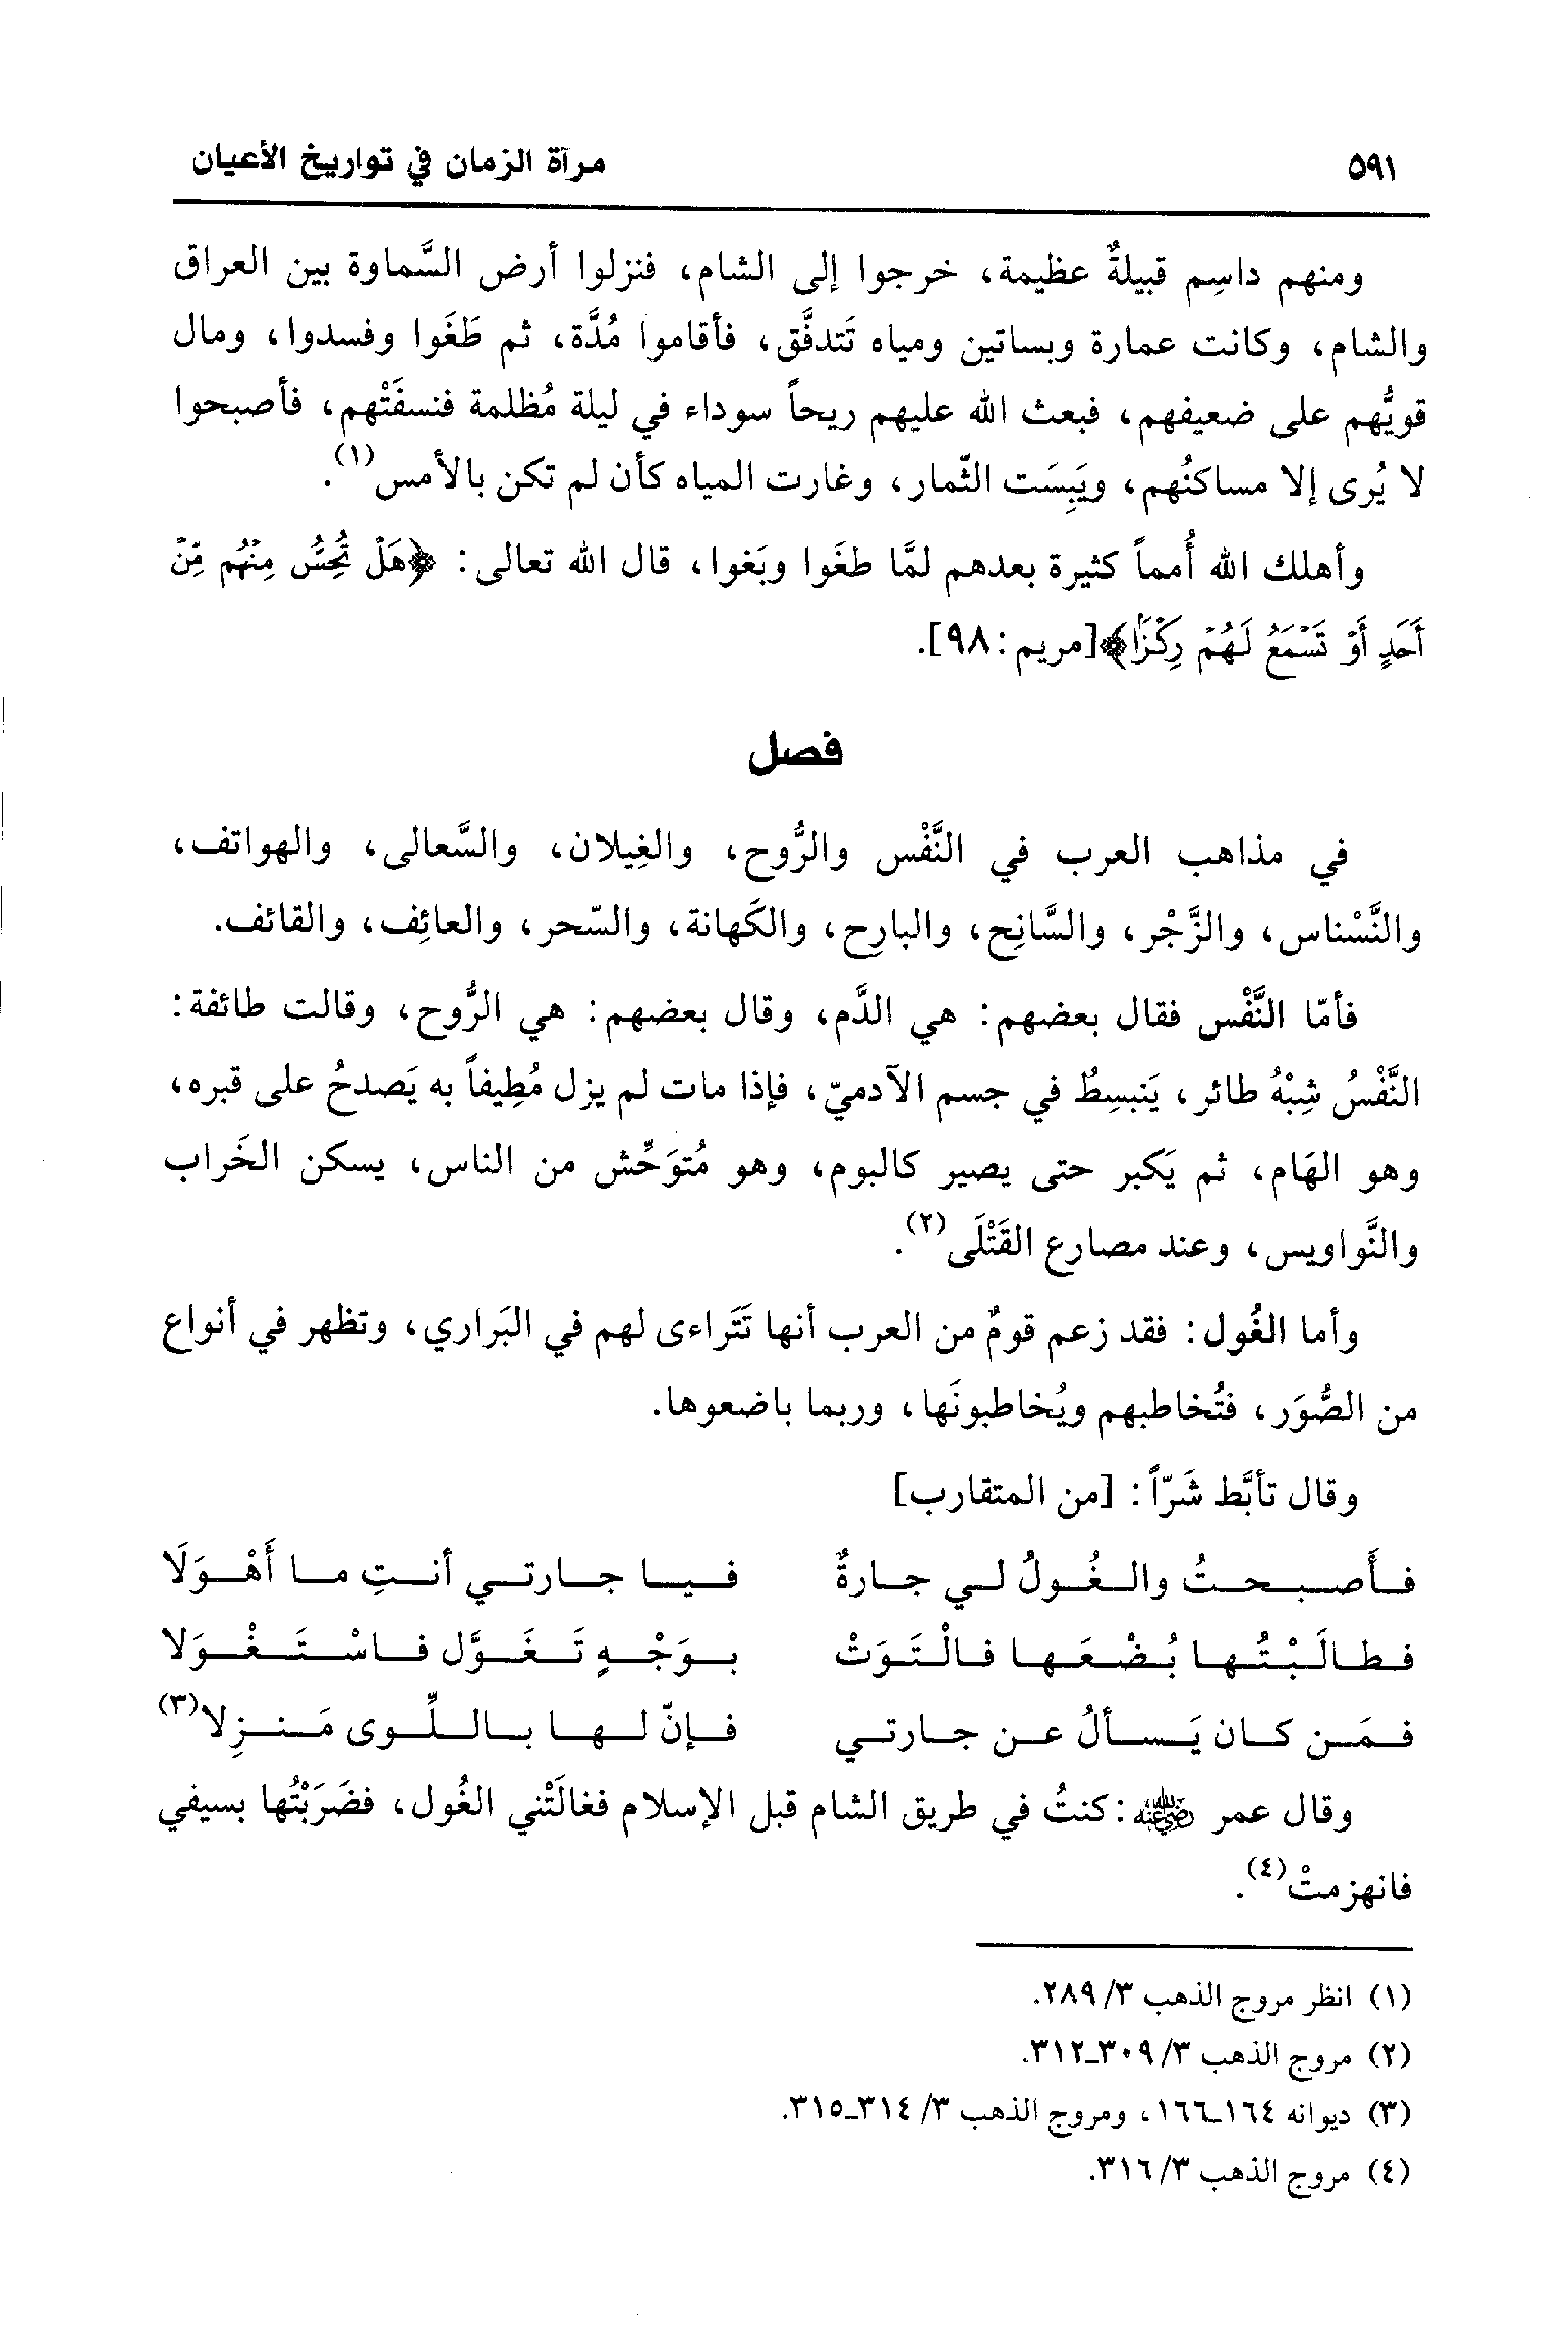 ٥٩١ مرآة الزمان في تواريخ الأعيان
ومنهم داسِم قبيلةٌ عظيمة، خرجوا إلى الشام، فنزلوا أرض السَّماوة بين العراق
والشام، وكانت عمارة وبساتين ومياه تَتدفَّق، فأقاموا مُدَّة، ثم طَغَوا وفسدوا، ومال
قويُّهم على ضعيفهم، فبعث الله عليهم ريحاً سوداء في ليلة مُظلمة فنسفَتْهم، فأصبحوا
لا يُرى إلا مساكنُهم، ويَبِسَت الثّمار، وغارت المياه كأن لم تكن بالأمس(١).
وأهلك الله أُمماً كثيرة بعدهم لمَّا طغَوا وبَغوا، قال الله تعالى: ﴿هَلْ تُحِسُّ مِنْهُم مِّنْ
أَحَدٍ أَوْ تَسْمَعُ لَهُمْ رِكْزَاً﴾[مريم: ٩٨].
فصل
في مذاهب العرب في النَّفْس والرُّوح، والغِيلان، والسَّعالى، والهواتف،
والنَّسْناس، والزَّجْر، والسَّانِح، والبارِح، والكَهانة، والسّحر، والعائِف، والقائف.
فأمّا النَّفْس فقال بعضهم: هي الدَّم، وقال بعضهم: هي الرُّوح، وقالت طائفة:
النَّفْسُ شِبْهُ طائر، يَنبسِطُ في جسم الآدميّ، فإذا مات لم يزل مُطِيفاً به يَصدحُ على قبره،
وهو الهَام، ثم يَكبر حتى يصير كالبوم، وهو مُتوَحِّش من الناس، يسكن الخَراب
والنَّواويس، وعند مصارع القَتْلَى(٢).
وأما الغُول: فقد زعم قومٌ من العرب أنها تَتَراءى لهم في البَراري، وتظهر في أنواع
من الصُّوَر، فتُخاطبهم ويُخاطبونَها، وربما باضعوها.
وقال تأبَّط شَرّاً: [من المتقارب]
فأَصبحتُ والغُولُ لي جارةٌ فيا جارتي أنتِ ما أَهْوَلَا
فطالَبْتُها بُضْعَها فالْتَوَتْ بوَجْهٍ تَغَوَّل فاسْتَغْوَلا
فمَن كان يَسألُ عن جارتي فإنّ لها باللِّوى مَنزِلا(٣)
وقال عمر رضي الله عنه: كنتُ في طريق الشام قبل الإسلام فغالَتْني الغُول، فضَرَبْتُها بسيفي
فانهزمتْ(٤).
(١) انظر مروج الذهب ٣/ ٢٨٩.
(٢) مروج الذهب ٣/ ٣٠٩ـ٣١٢.
(٣) ديوانه ١٦٤ـ١٦٦، ومروج الذهب ٣/ ٣١٤ـ٣١٥.
(٤) مروج الذهب ٣/ ٣١٦.